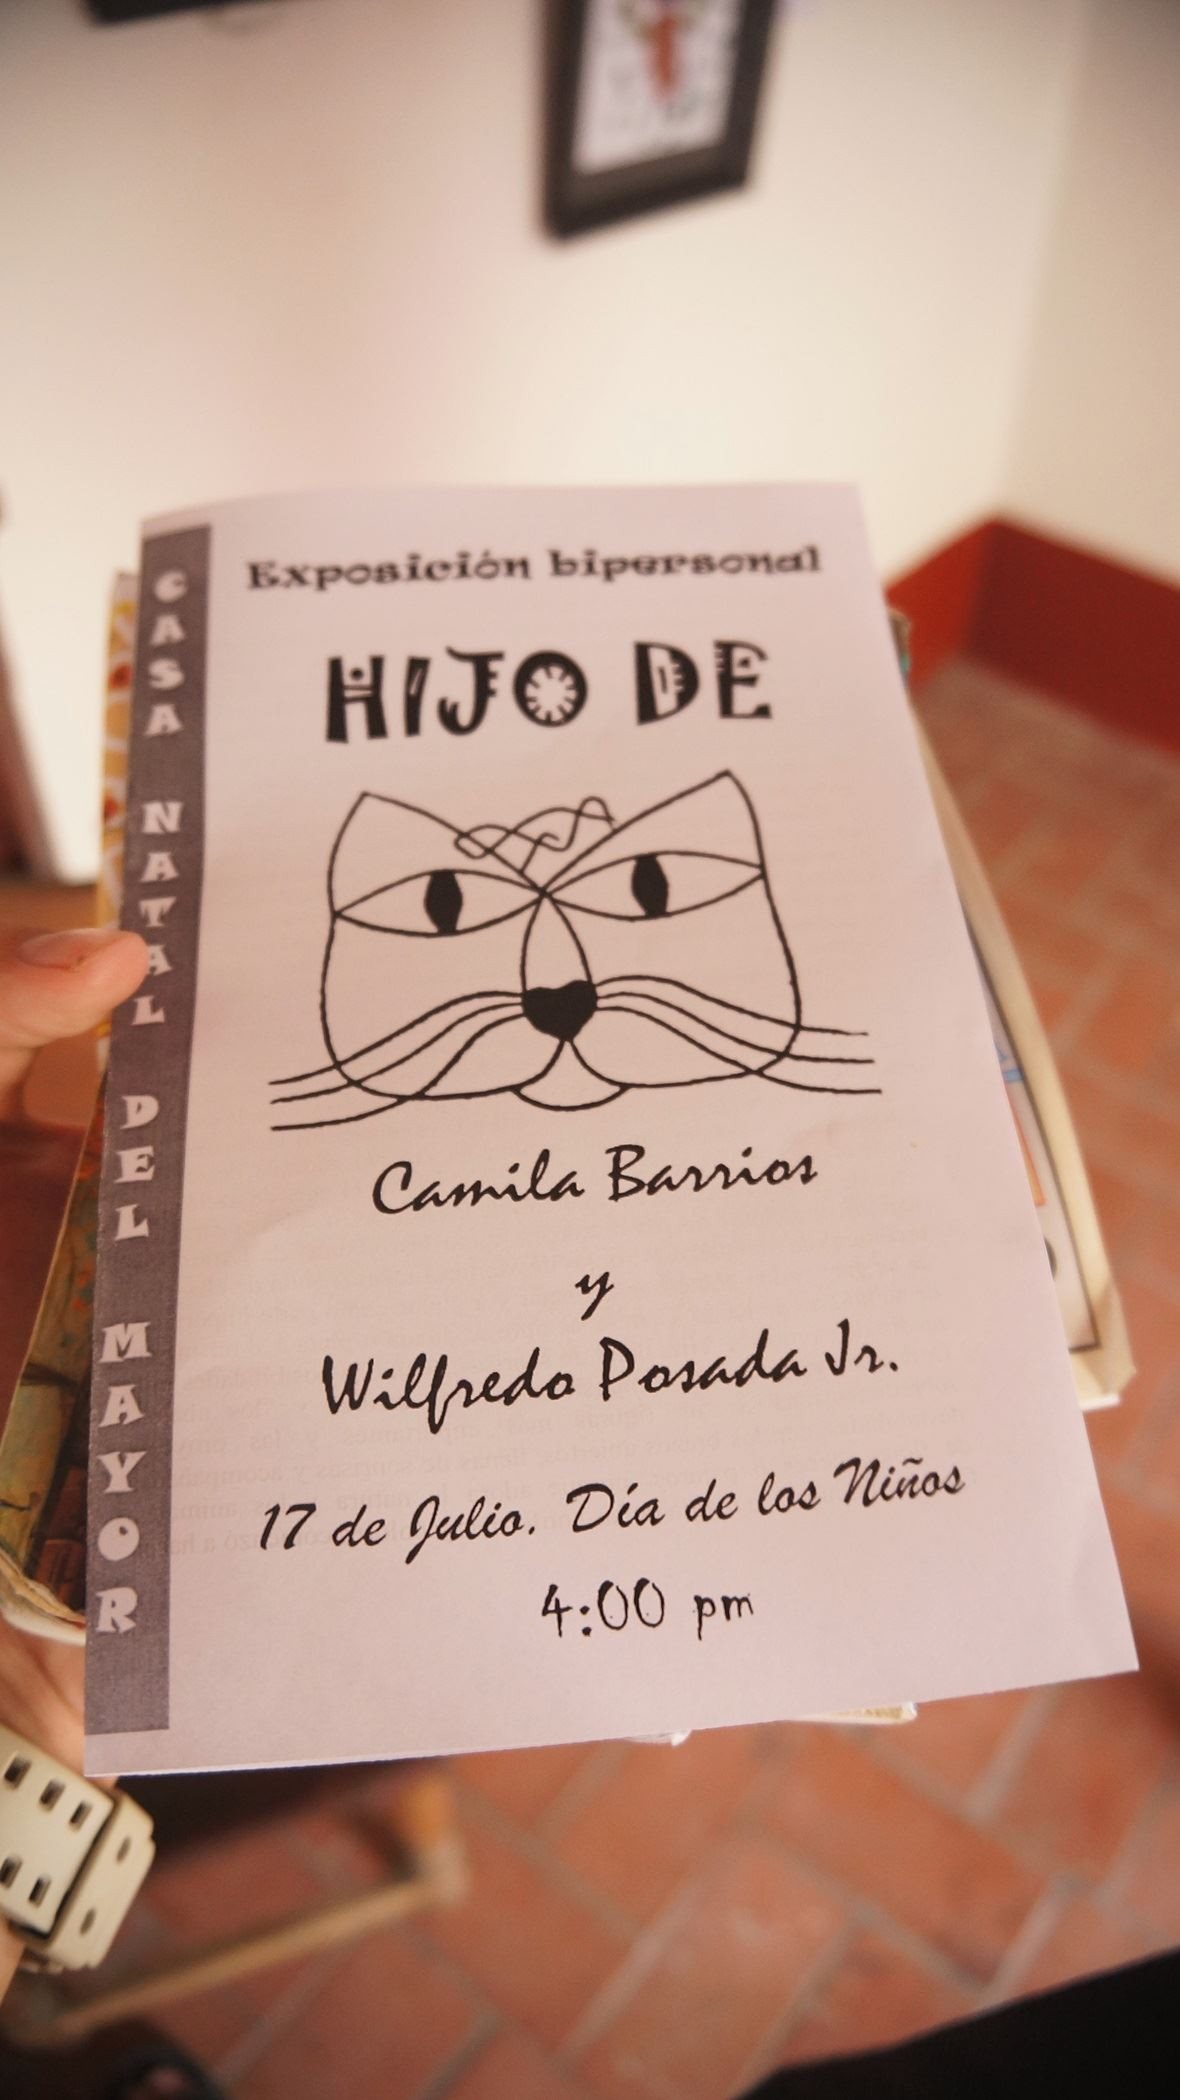 CASA NATAL DEL MAYOR
Exposición bipersonal
HIJO DE
Camila Barrios
y
Wilfredo Posada Jr.
17 de Julio. Día de los Niños
4:00 pm